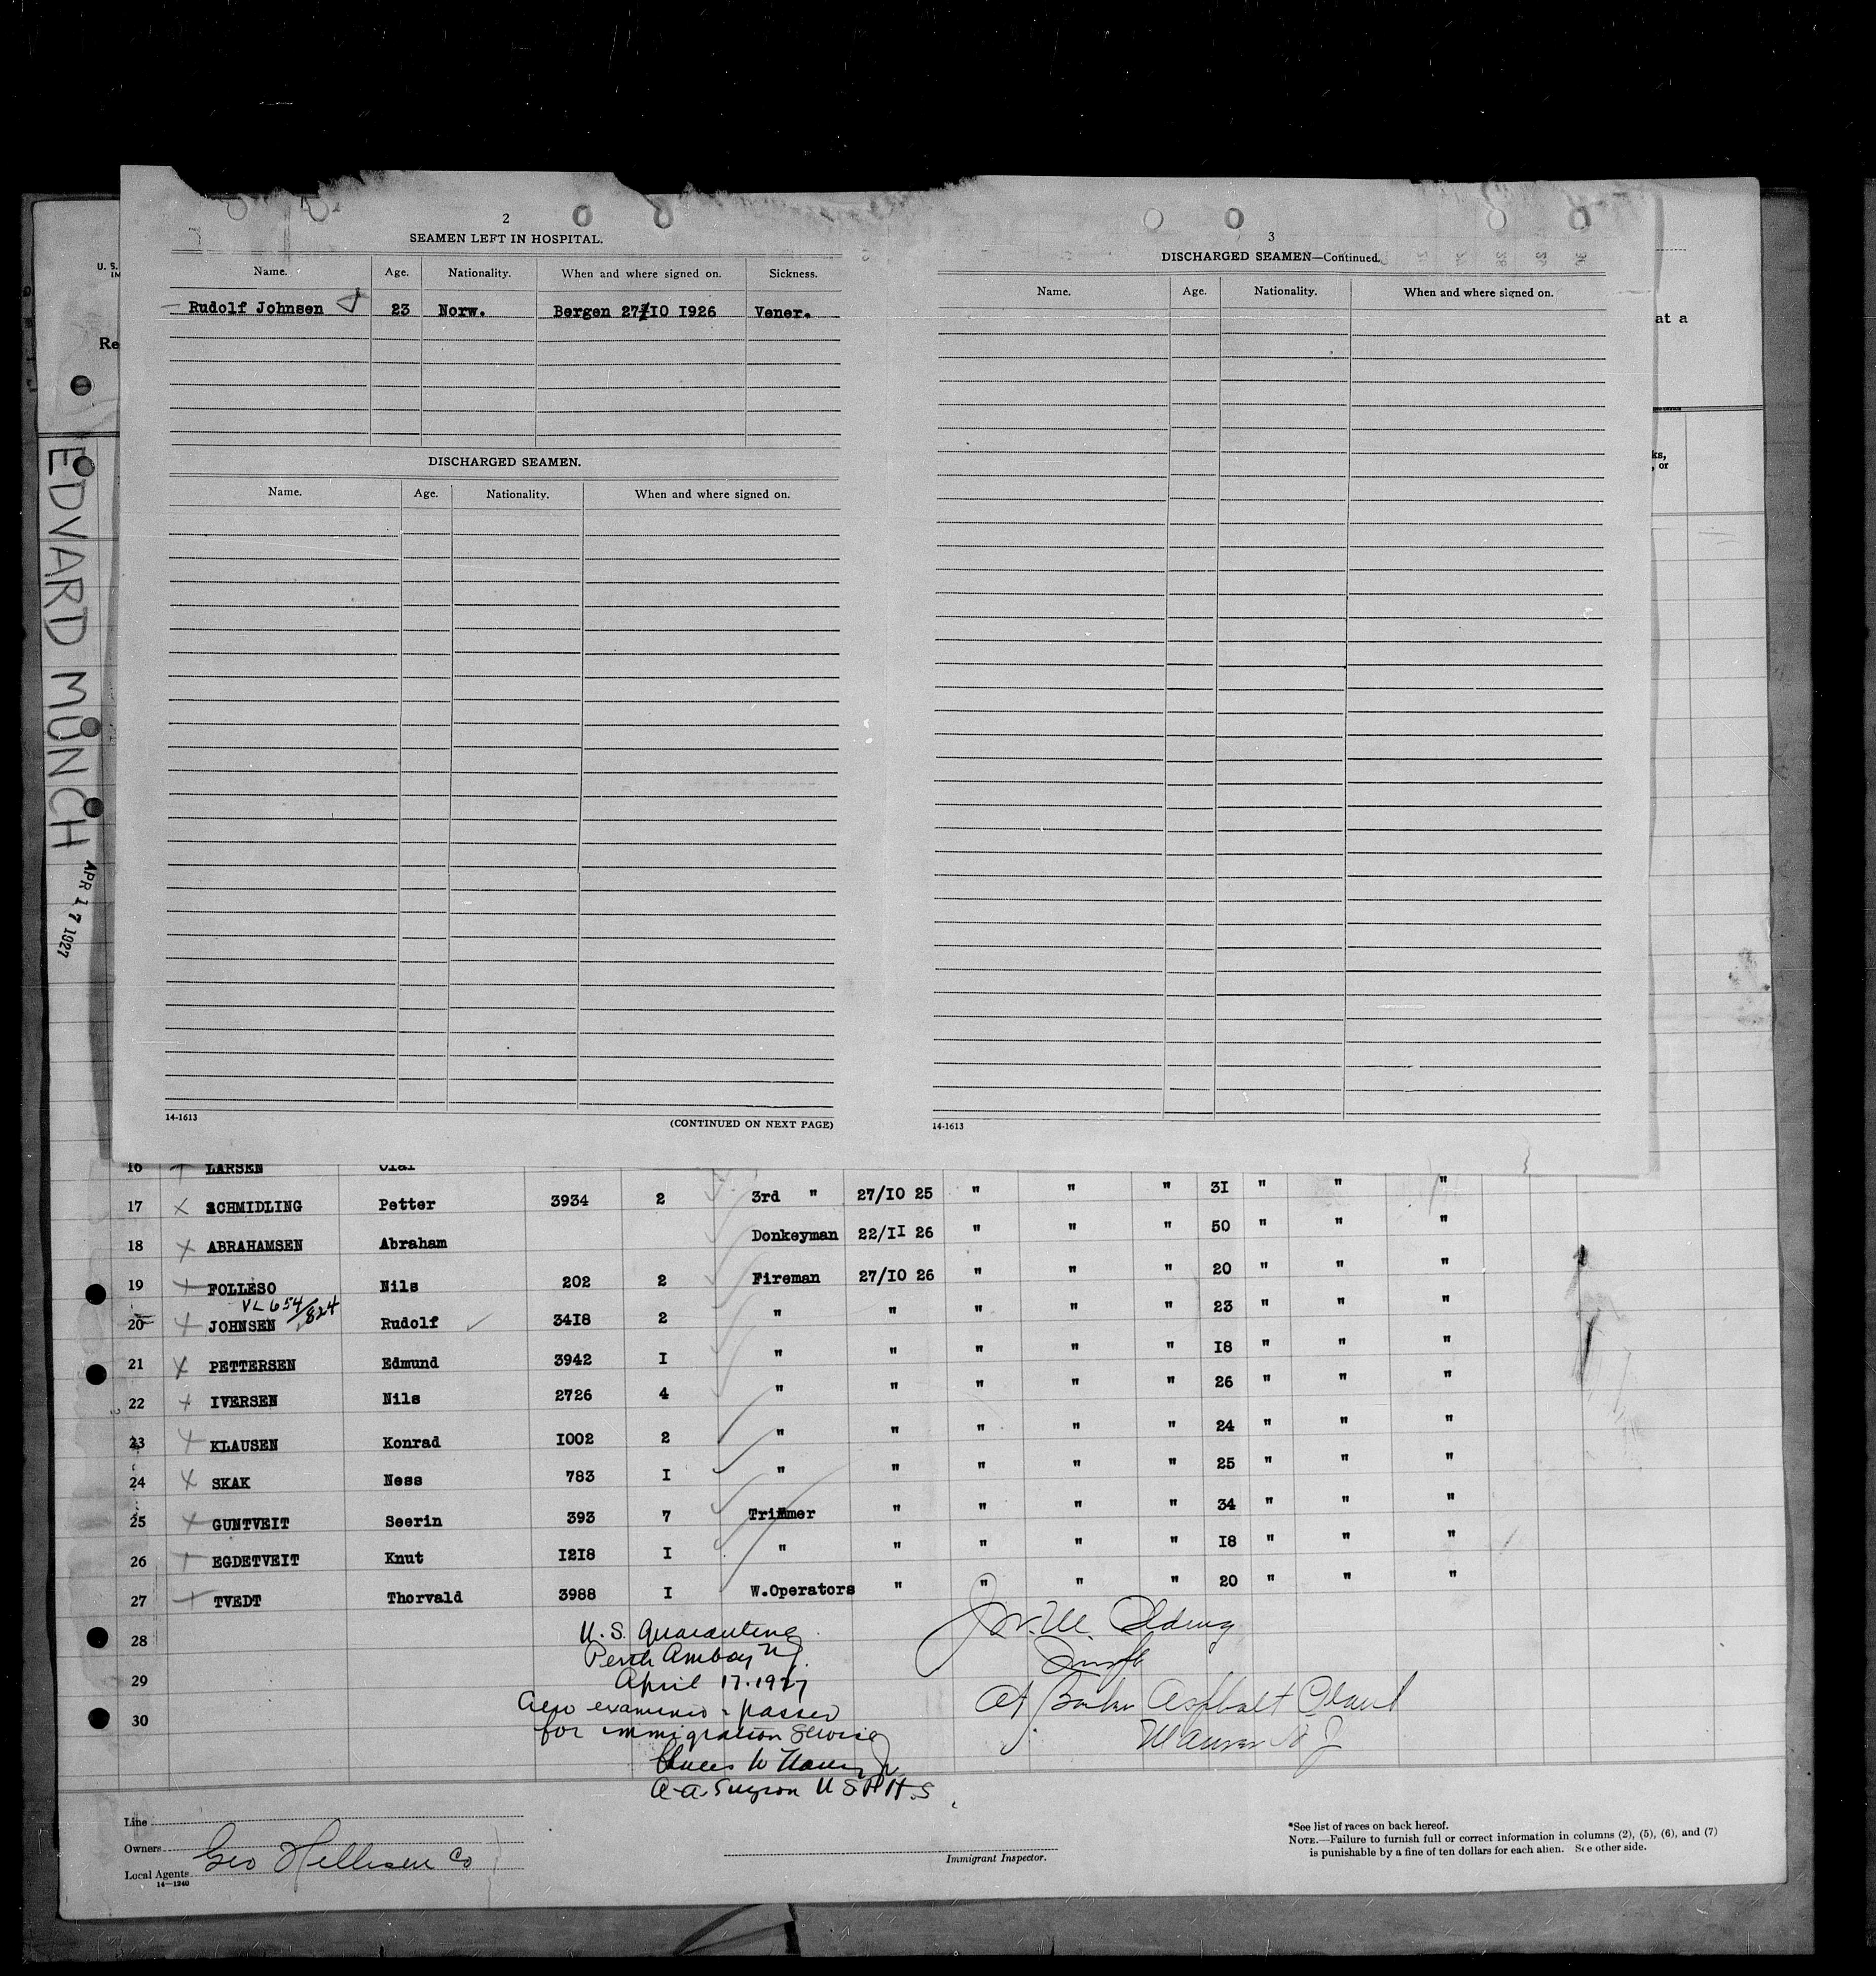 2
SEAMEN LEFT IN HOSPITAL.
Name. Age. Nationality. When and where signed on. Sickness.
Rudolf Johnsen 23 Norw. Bergen 27/10 1926 Vener.
DISCHARGED SEAMEN.
Name. Age. Nationality. When and where signed on.
14-1613
(CONTINUED ON NEXT PAGE)
3
DISCHARGED SEAMEN—Continued.
Name. Age. Nationality. When and where signed on.
14-1613
U. S.
IM
Re
at a
ks,
, or
EDVARD MÜNCH
APR 17 1927
16 LARSEN Olaf
17 SCHMIDLING Petter 3934 2 3rd " 27/10 25 " " " 31 " " "
18 ABRAHAMSEN Abraham Donkeyman 22/11 26 " " " 50 " " "
19 FOLLESO Nils 202 2 Fireman 27/10 26 " " " 20 " " "
VL 654/824
20 JOHNSEN Rudolf 3418 2 " " " " " 23 " " "
21 PETTERSEN Edmund 3942 I " " " " " 18 " " "
22 IVERSEN Nils 2726 4 " " " " " 26 " " "
23 KLAUSEN Konrad 1002 2 " " " " " 24 " " "
24 SKAK Ness 783 I " " " " " 25 " " "
25 GUNTVEIT Seerin 393 7 Trimmer " " " " 34 " " "
26 EGDETVEIT Knut 1218 I " " " " " 18 " " "
27 TVEDT Thorvald 3988 I W.Operators " " " " 20 " " "
28
29
30
U.S. Quarantine
Perth Amboy N.J.
April 17. 1927
also examined & passed
for immigration Service
A-A. Surgeon U S P H. S
Insp
At Barber Asphalt Plant
Maurer N J
Line
Owners
Local Agents Geo Hellisen Co
14—1240
Immigrant Inspector.
*See list of races on back hereof.
NOTE.—Failure to furnish full or correct information in columns (2), (5), (6), and (7)
is punishable by a fine of ten dollars for each alien. See other side.